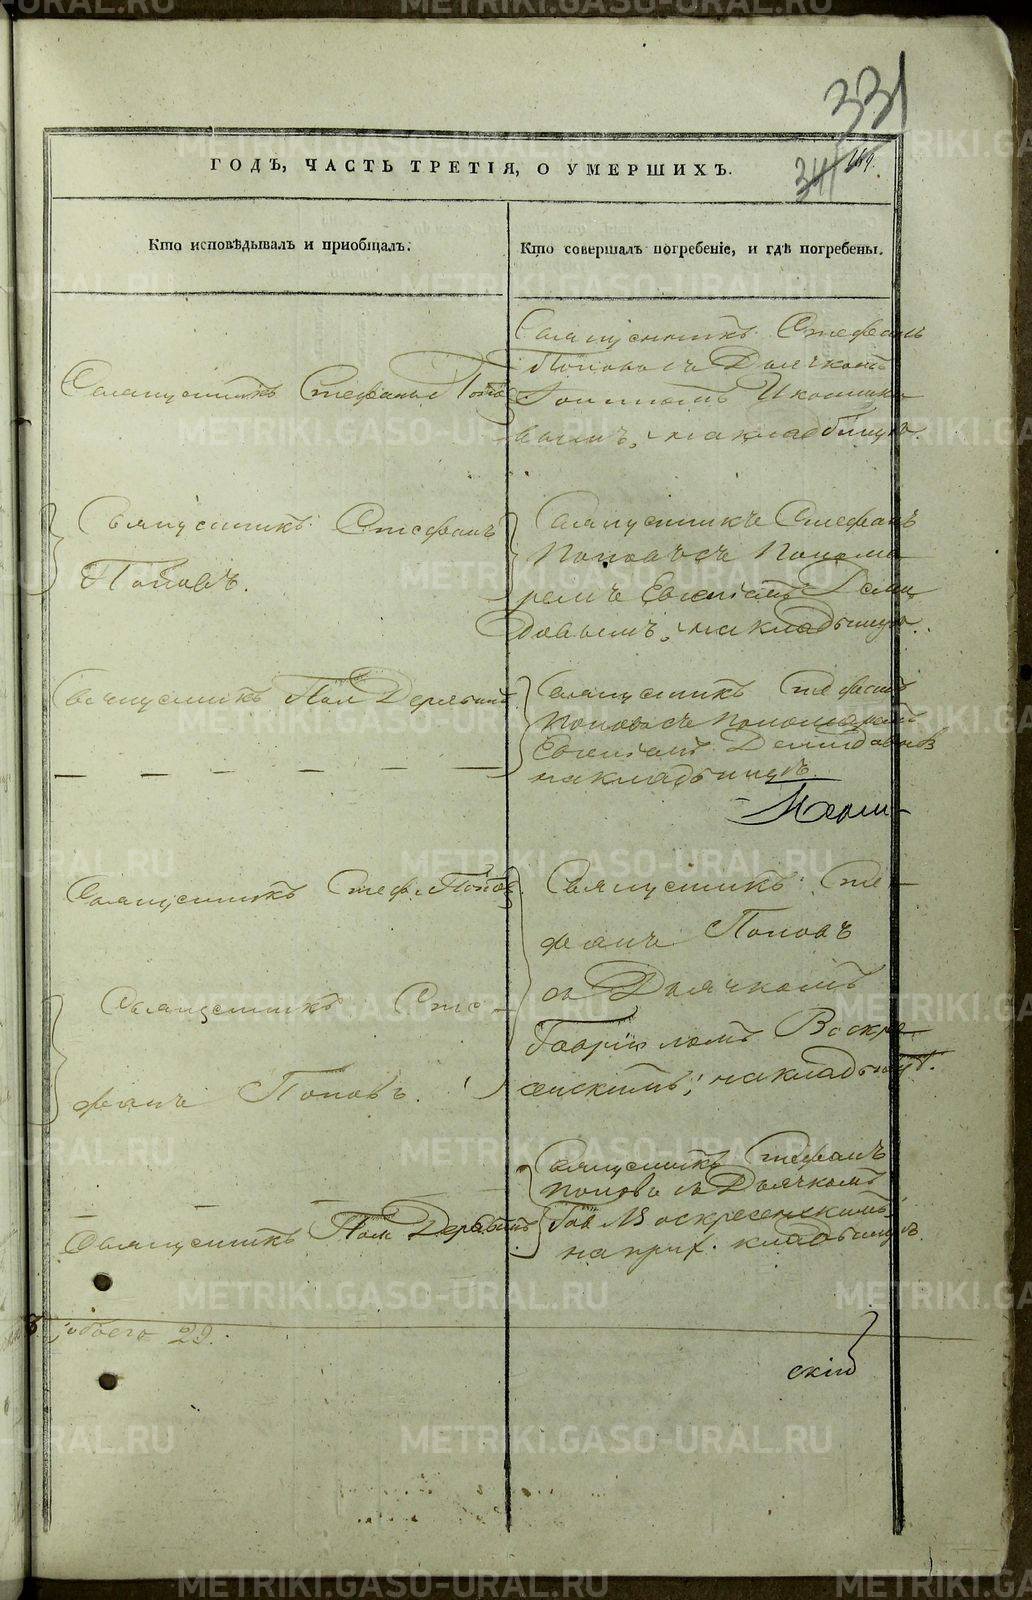 331
341
ГОДЪ, ЧАСТЬ ТРЕТІЯ, О УМЕРШИХЪ.
Кто исповѣдывалъ и пріобщалъ.
Кто совершалъ погребеніе, и гдѣ погребены.
Священникъ Стефанъ Попо
Священникъ Стефанъ
Поповъ съ Дьячкомъ
вымъ, на кладбищѣ.
Священникъ Стефанъ
Поповъ.
Священникъ Стефанъ
Поповъ съ Понома
ремъ Евгеніемъ Деми
довымъ, на кладбищѣ.
Священникъ Дерябинъ
Священникъ Стефанъ
Поповъ съ Пономаремъ
Евгеніемъ Демидовымъ
на кладбищѣ.
Священникъ Стеф. Попов
Священникъ Сте-
фанъ Поповъ
съ Дьячкомъ
Гавріиломъ Воскре-
сенскимъ, на кладбищѣ.
Священникъ Сте-
фанъ Поповъ.
Священникъ Стефанъ
Поповъ съ Дьячкомъ
Гав. Воскресенскимъ
на прих. кладбищѣ.
Священникъ Дерябинъ
обоего 29.
скій
METRIKI.GASO-URAL.RU